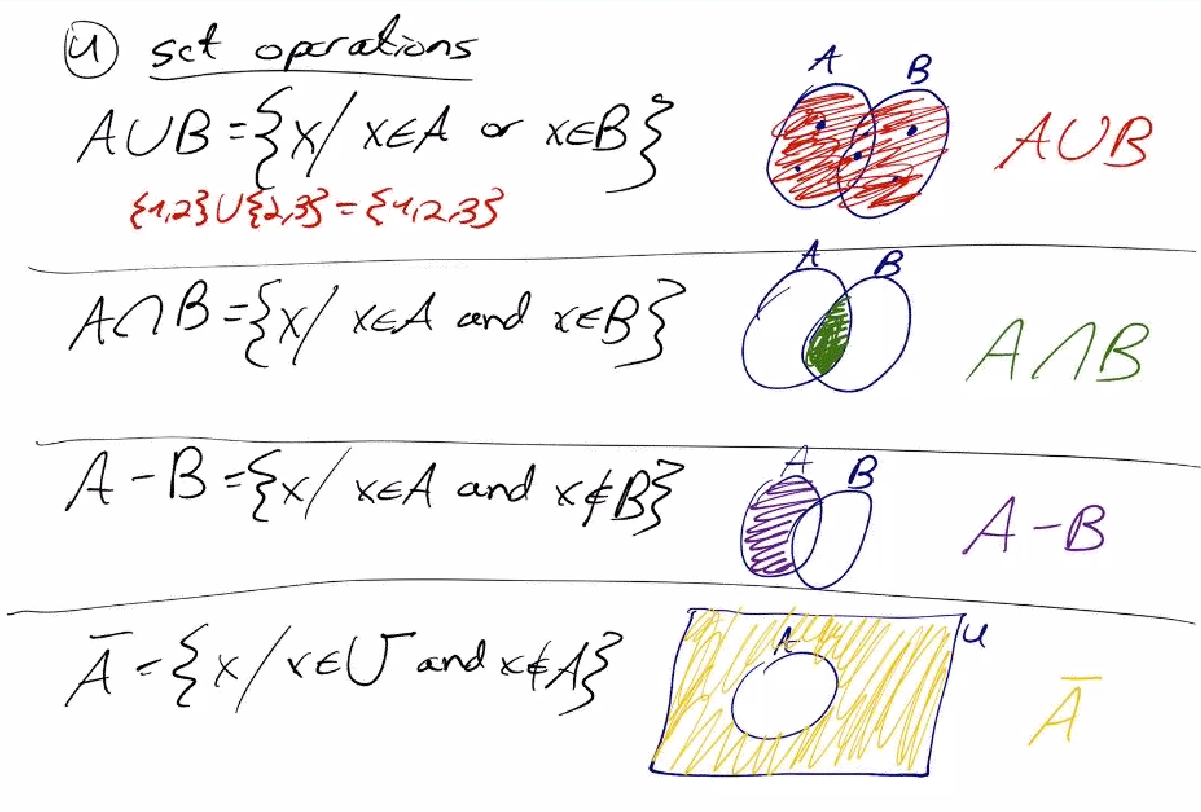 ④ set operations
A∪B={x/ x∈A or x∈B}
A B
A∪B
{1,2}∪{2,3}={1,2,3}
A∩B={x/ x∈A and x∈B}
A B
A∩B
A-B={x/ x∈A and x∉B}
A B
A-B
Ā={x/x∈U and x∉A}
A
U
Ā